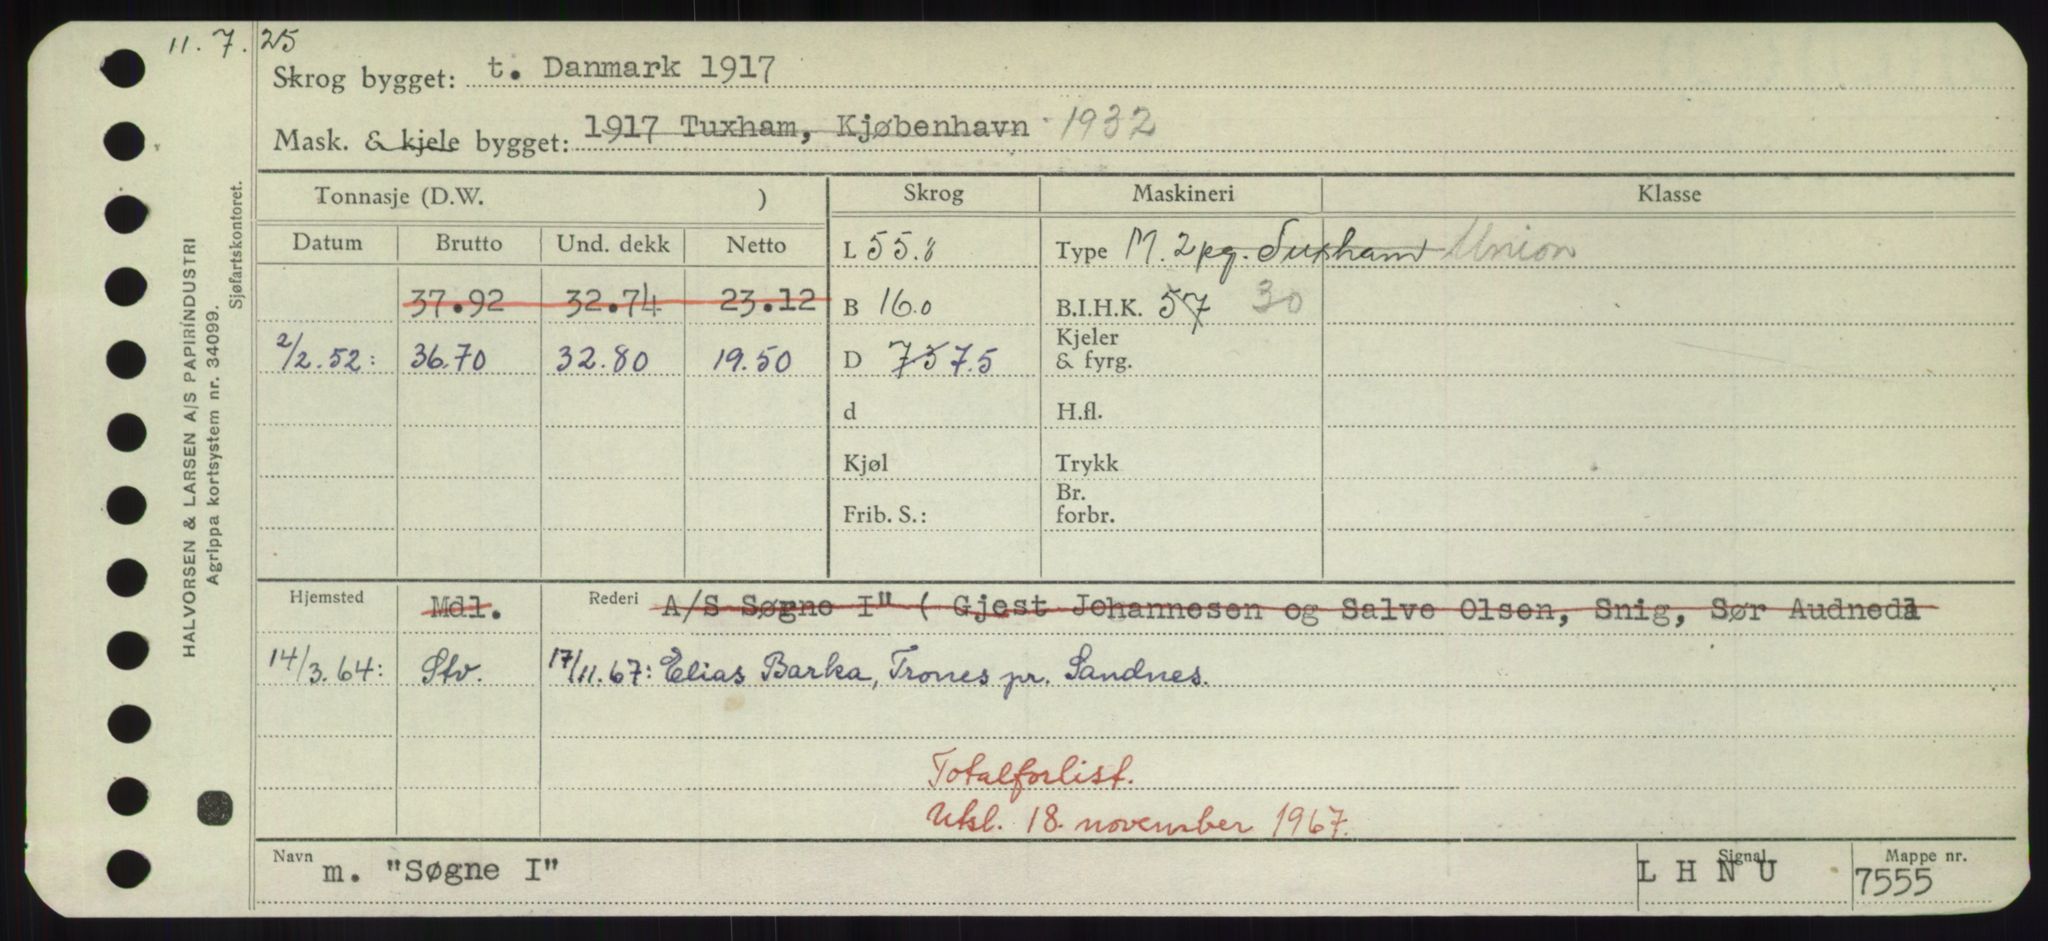 11.7.25
Skrog bygget: t. Danmark 1917
Mask. & kjele bygget: 1917 Tuxham, Kjøbenhavn 1932
Tonnasje (D.W. ) Skrog Maskineri Klasse
Datum Brutto Und. dekk Netto L 55.8 Type M. 2 pg. Tuxham Union
37.92 32.74 23.12 B 16.0 B.I.H.K. 57 30
2/2.52: 36.70 32.80 19.50 D 73 7.5 Kjeler & fyrg.
d H.fl.
Kjøl Trykk
Frib. S.: Br. forbr.
Hjemsted Mdl. Rederi A/S Søgne I" ( Gjest Johannesen og Salve Olsen, Snig, Sør Audnedal
14/3.64: Stv. 17/11.67: Elias Barka, Trones pr. Sandnes.
Totalforlist.
Utsl. 18. november 1967.
Navn m. "Søgne I" Signal L H N U Mappe nr. 7555
HALVORSEN & LARSEN A/S PAPIRINDUSTRI
Agrippa kortsystem nr. 34099.
Sjøfartskontoret.